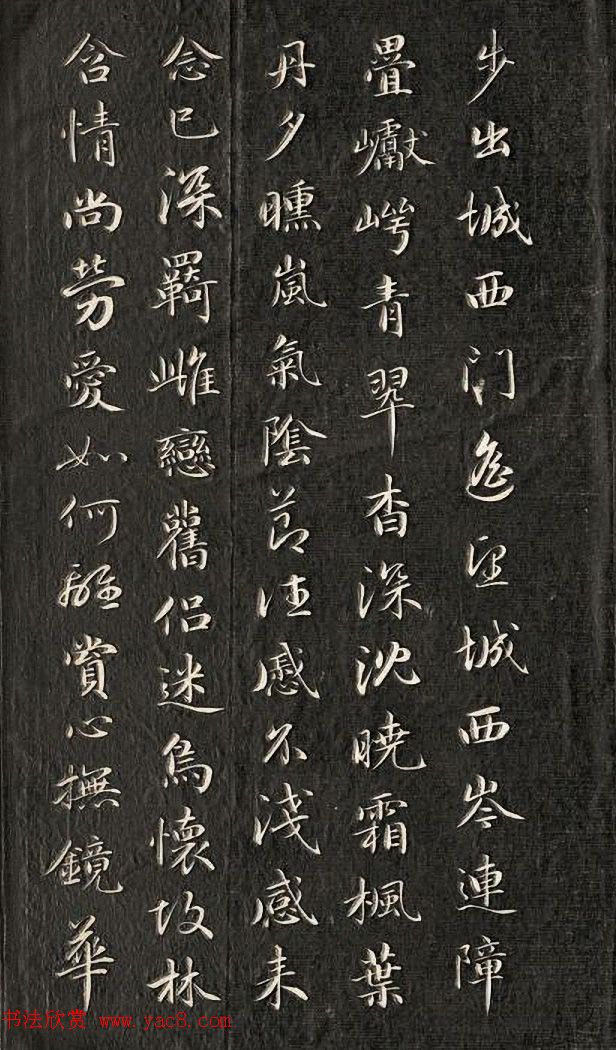 步出城西门遥望城西岑連障
疊巘崿青翠杳深沈曉霜楓葉
丹夕曛嵐氣陰莭往慼不淺感来
念已深羇雌戀舊侶迷鳥懷故林
含情尚勞愛如何離賞心撫鏡華
书法欣赏 www.yac8.com